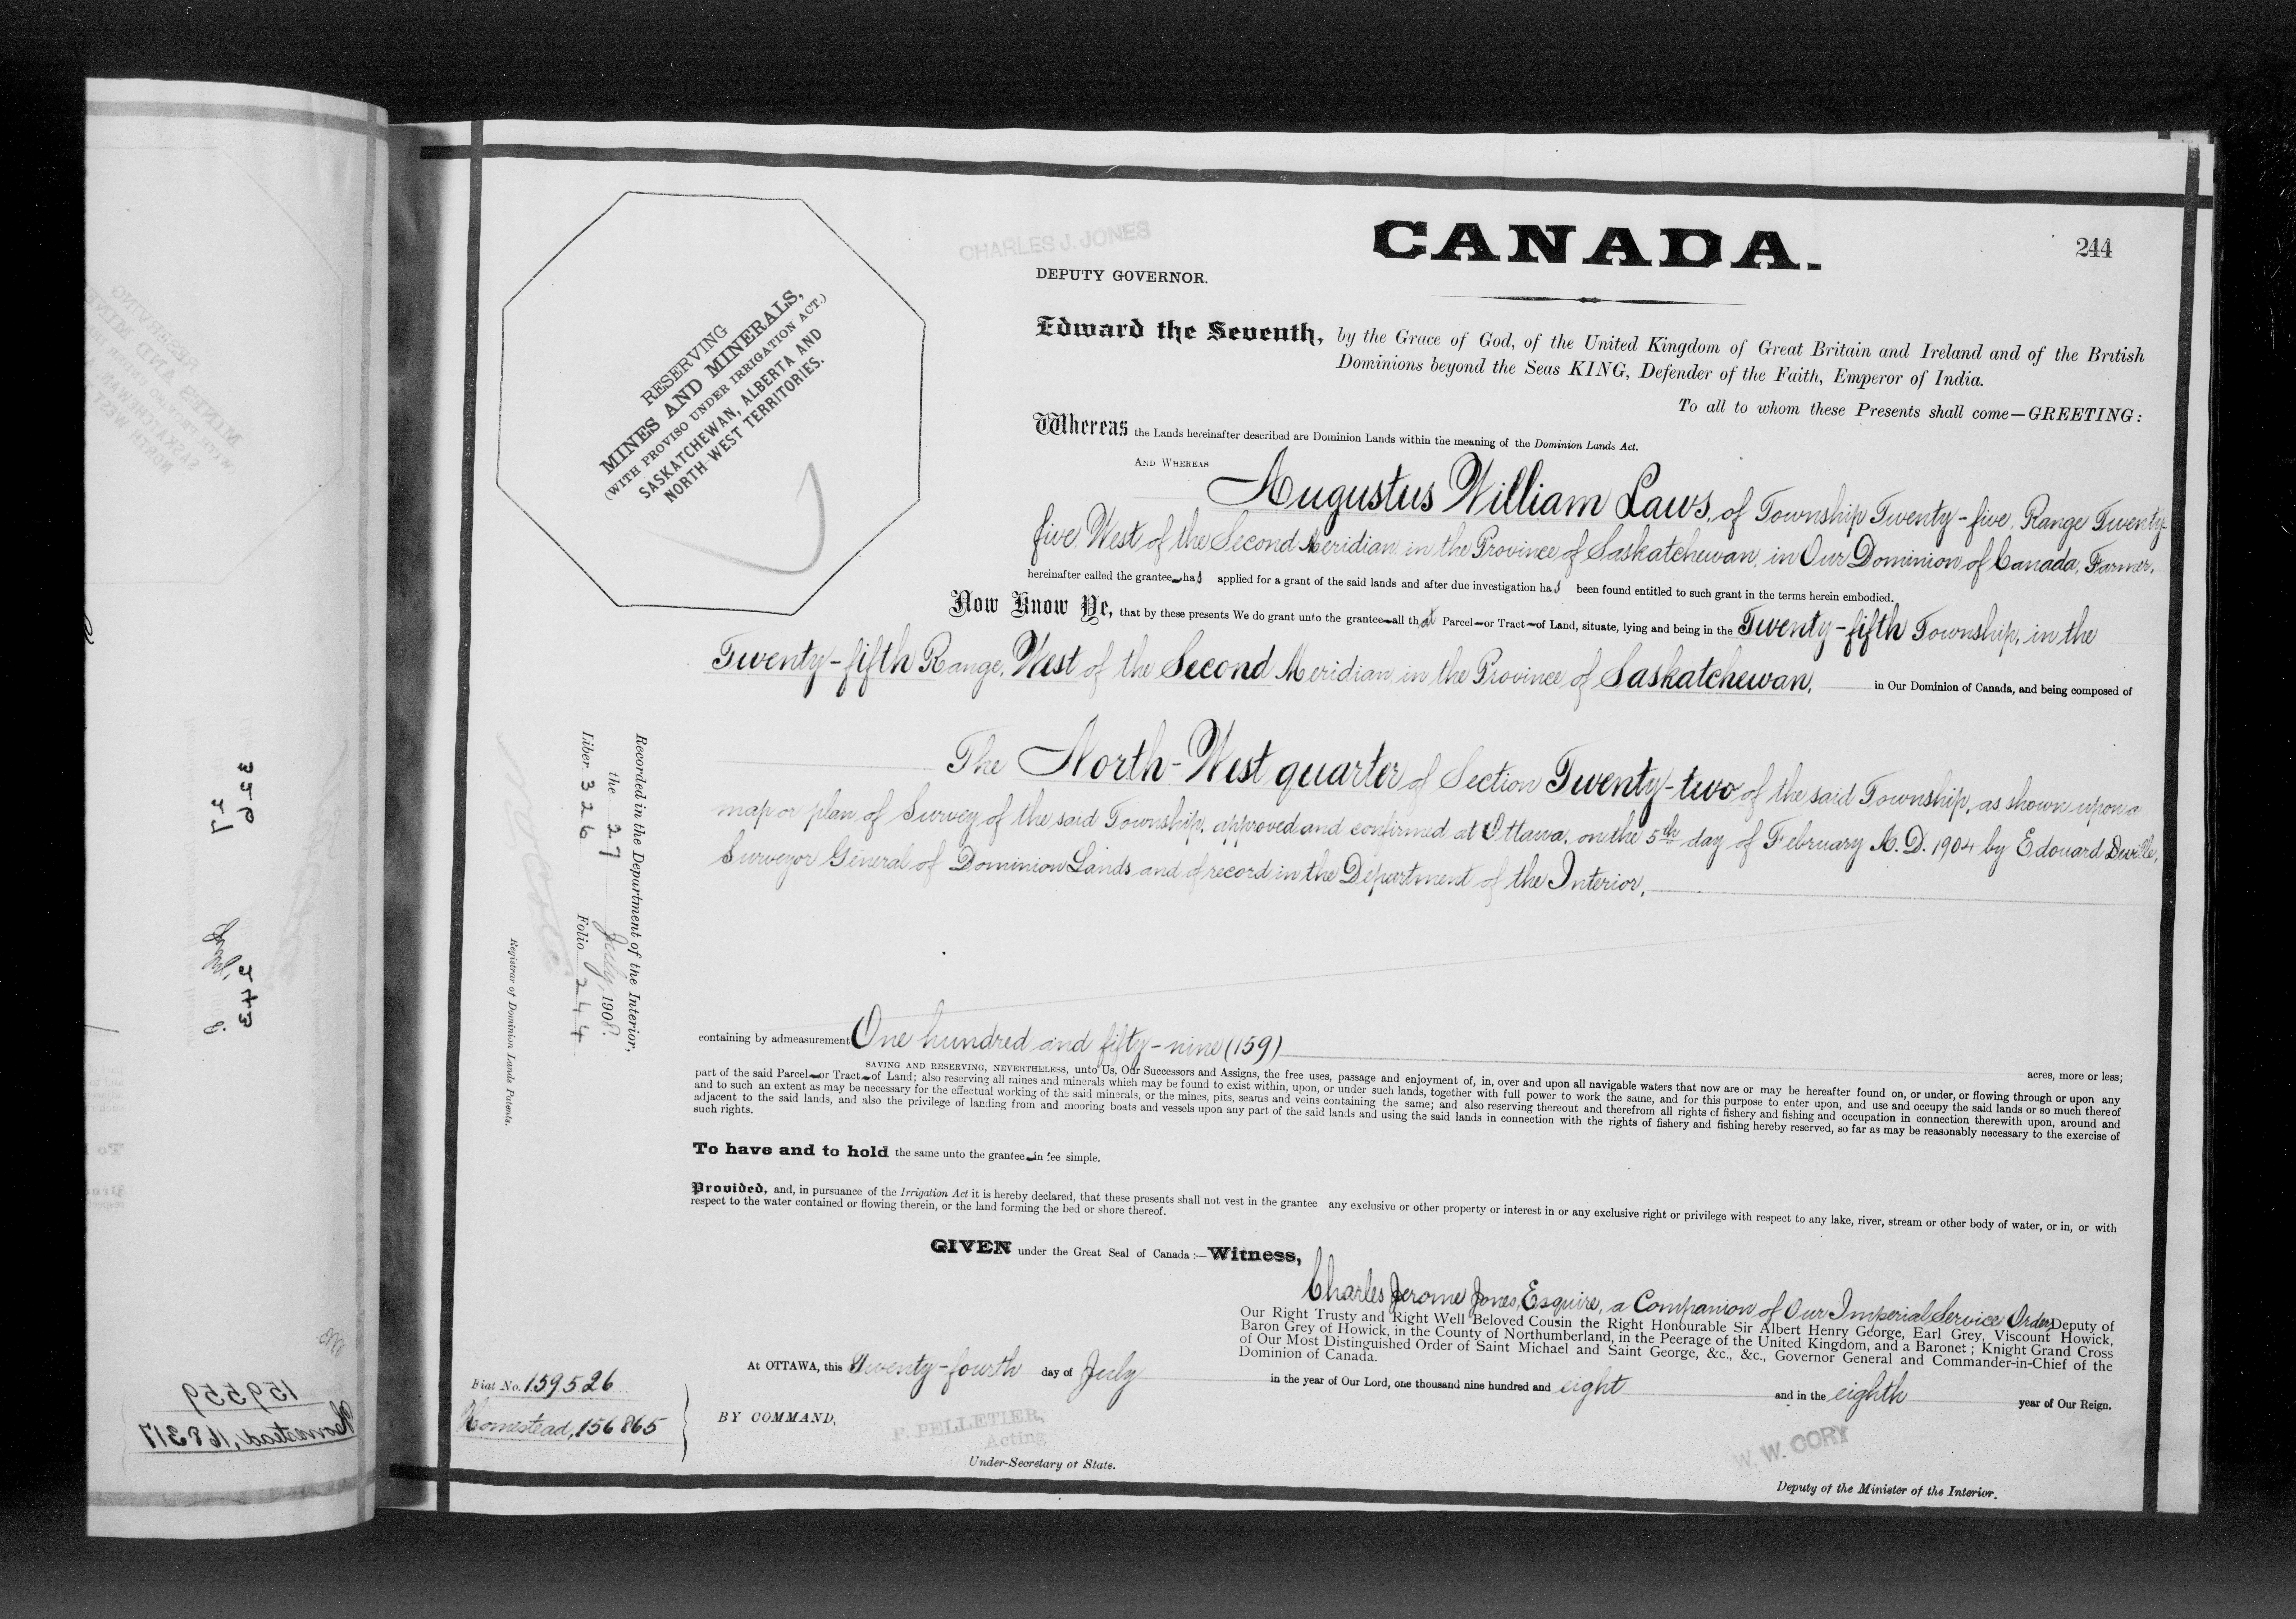 CANADA.
244
CHARLES J. JONES
DEPUTY GOVERNOR.
RESERVING
MINES AND MINERALS,
(WITH PROVISO UNDER IRRIGATION ACT.)
SASKATCHEWAN, ALBERTA AND
NORTH-WEST TERRITORIES.
Edward the Seventh, by the Grace of God, of the United Kingdom of Great Britain and Ireland and of the British
Dominions beyond the Seas KING, Defender of the Faith, Emperor of India.
To all to whom these Presents shall come—GREETING:
Whereas the Lands hereinafter described are Dominion Lands within the meaning of the Dominion Lands Act.
AND WHEREAS Augustus William Laws, of Township Twenty-five, Range Twenty-
five, West of the Second Meridian, in the Province of Saskatchewan, in Our Dominion of Canada, Farmer,
hereinafter called the grantee has applied for a grant of the said lands and after due investigation has been found entitled to such grant in the terms herein embodied.
Now Know Ye, that by these presents We do grant unto the grantee all that Parcel or Tract of Land, situate, lying and being in the Twenty-fifth Township, in the
Twenty-fifth Range, West of the Second Meridian, in the Province of Saskatchewan, in Our Dominion of Canada, and being composed of
The North-West quarter of Section Twenty-two of the said Township, as shown upon a
map or plan of Survey of the said Township, approved and confirmed at Ottawa, on the 5th day of February A.D. 1904 by Edouard Deville,
Surveyor General of Dominion Lands and of record in the Department of the Interior,
containing by admeasurement One hundred and fifty-nine (159) acres, more or less;
SAVING AND RESERVING, NEVERTHELESS, unto Us, Our Successors and Assigns, the free uses, passage and enjoyment of, in, over and upon all navigable waters that now are or may be hereafter found on, or under, or flowing through or upon any
part of the said Parcel or Tract of Land; also reserving all mines and minerals which may be found to exist within, upon, or under such lands, together with full power to work the same, and for this purpose to enter upon, and use and occupy the said lands or so much thereof
and to such an extent as may be necessary for the effectual working of the said minerals, or the mines, pits, seams and veins containing the same; and also reserving thereout and therefrom all rights of fishery and fishing and occupation in connection therewith upon, around and
adjacent to the said lands, and also the privilege of landing from and mooring boats and vessels upon any part of the said lands and using the said lands in connection with the rights of fishery and fishing hereby reserved, so far as may be reasonably necessary to the exercise of
such rights.
To have and to hold the same unto the grantee in fee simple.
Provided, and, in pursuance of the Irrigation Act it is hereby declared, that these presents shall not vest in the grantee any exclusive or other property or interest in or any exclusive right or privilege with respect to any lake, river, stream or other body of water, or in, or with
respect to the water contained or flowing therein, or the land forming the bed or shore thereof.
GIVEN under the Great Seal of Canada:—Witness,
Charles Jerome Jones, Esquire, a Companion of Our Imperial Service Order, Deputy of
Our Right Trusty and Right Well Beloved Cousin the Right Honourable Sir Albert Henry George, Earl Grey, Viscount Howick,
Baron Grey of Howick, in the County of Northumberland, in the Peerage of the United Kingdom, and a Baronet; Knight Grand Cross
of Our Most Distinguished Order of Saint Michael and Saint George, &c., &c., Governor General and Commander-in-Chief of the
Dominion of Canada.
At OTTAWA, this Twenty-fourth day of July in the year of Our Lord, one thousand nine hundred and eight and in the eighth year of Our Reign.
BY COMMAND,
P. PELLETIER,
Acting
Under-Secretary of State.
W. W. CORY
Deputy of the Minister of the Interior.
Fiat No. 159526
Homestead, 156865
Recorded in the Department of the Interior,
the 27 July, 1908.
Liber 326 Folio 244
Registrar of Dominion Lands Patents.
159559
Homestead, 168317